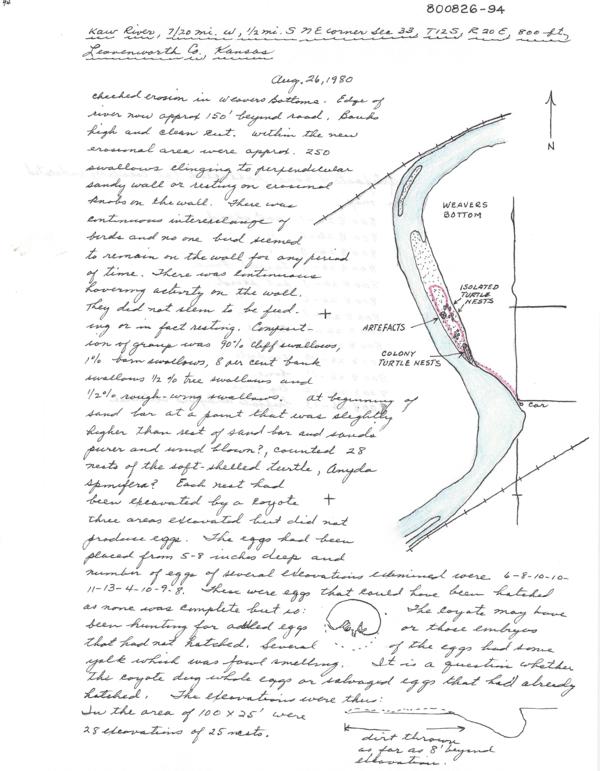 800826-94
Kaw River, 7/20 mi. W, 1/2 mi. S NE corner Sec 33, T12S, R20E, 800 ft,
Leavenworth Co. Kansas
Aug. 26, 1980
checked erosion in Weavers Bottoms. Edge of
river now approx 150' beyond road. Banks
high and clean cut. Within the new
erosional area were approx. 250
swallows clinging to perpendicular
sandy wall or resting on erosional
knobs on the wall. There was
continuous interexchange of
birds and no one bird seemed
to remain on the wall for any period
of time. There was continuous
hovering activity on the wall.
They did not seem to be feed-
ing or in fact resting. Composit-
ion of group was 90% cliff swallows,
1% barn swallows, 8 per cent bank
swallows 1/2 % tree swallows and
1/2% rough-wing swallows. At beginning of
sand bar at a point that was slightly
higher than rest of sand bar and sands
purer and wind blown?, counted 28
nests of the soft-shelled turtle, Amyda
spinifera? Each nest had
been excavated by a coyote
three areas excavated but did not
produce eggs. The eggs had been
placed from 5-8 inches deep and
number of eggs of several excavations examined were 6-8-10-10-
11-13-4-10-9-8. These were eggs that could have been hatched
as none was complete but is: The coyote may have
been hunting for addled eggs or those embryos
that had not hatched. Several of the eggs had some
yolk which was fowl smelling. It is a question whether
the coyote dug whole eggs or salvaged eggs that had already
hatched. The excavations were thus:
In the area of 100 x 25' were
28 excavations of 25 nests.
dirt thrown
as far as 8' beyond
excavation.
N
WEAVERS
BOTTOM
ISOLATED
TURTLE
NESTS
ARTEFACTS
COLONY
TURTLE NESTS
car